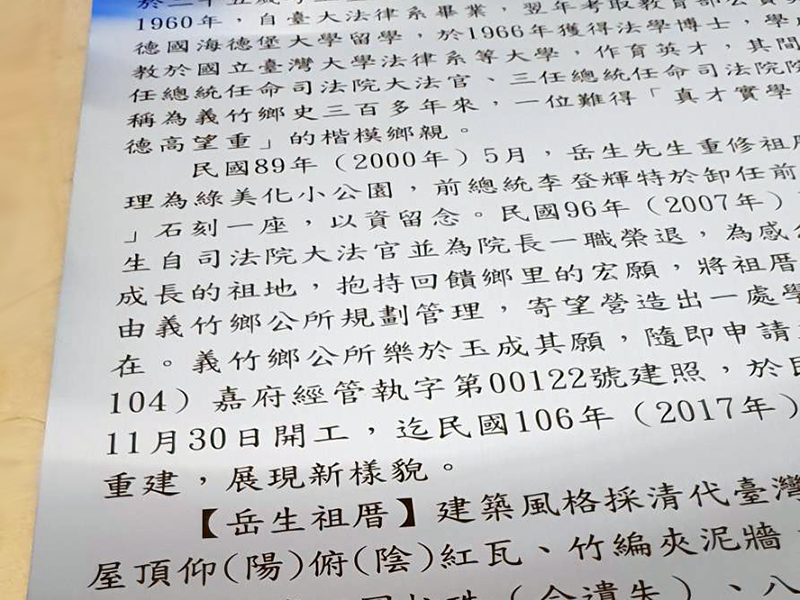 於二十五歲
1960年，自臺大法律系畢業，翌年考取教育部公費
德國海德堡大學留學，於1966年獲得法學博士，學
教於國立臺灣大學法律系等大學，作育英才，其間
任總統任命司法院大法官、三任總統任命司法院院
稱為義竹鄉史三百多年來，一位難得「真才實學
德高望重」的楷模鄉親。
民國89年（2000年）5月，岳生先生重修祖厝
理為綠美化小公園，前總統李登輝特於卸任前
」石刻一座，以資留念。民國96年（2007年）
生自司法院大法官並為院長一職榮退，為感
成長的祖地，抱持回饋鄉里的宏願，將祖厝
由義竹鄉公所規劃管理，寄望營造出一處學
在。義竹鄉公所樂於玉成其願，隨即申請
104）嘉府經管執字第00122號建照，於民
11月30日開工，迄民國106年（2017年）
重建，展現新樣貌。
【岳生祖厝】建築風格採清代臺灣
屋頂仰(陽)俯(陰)紅瓦、竹編夾泥牆、
（今遺失）、八